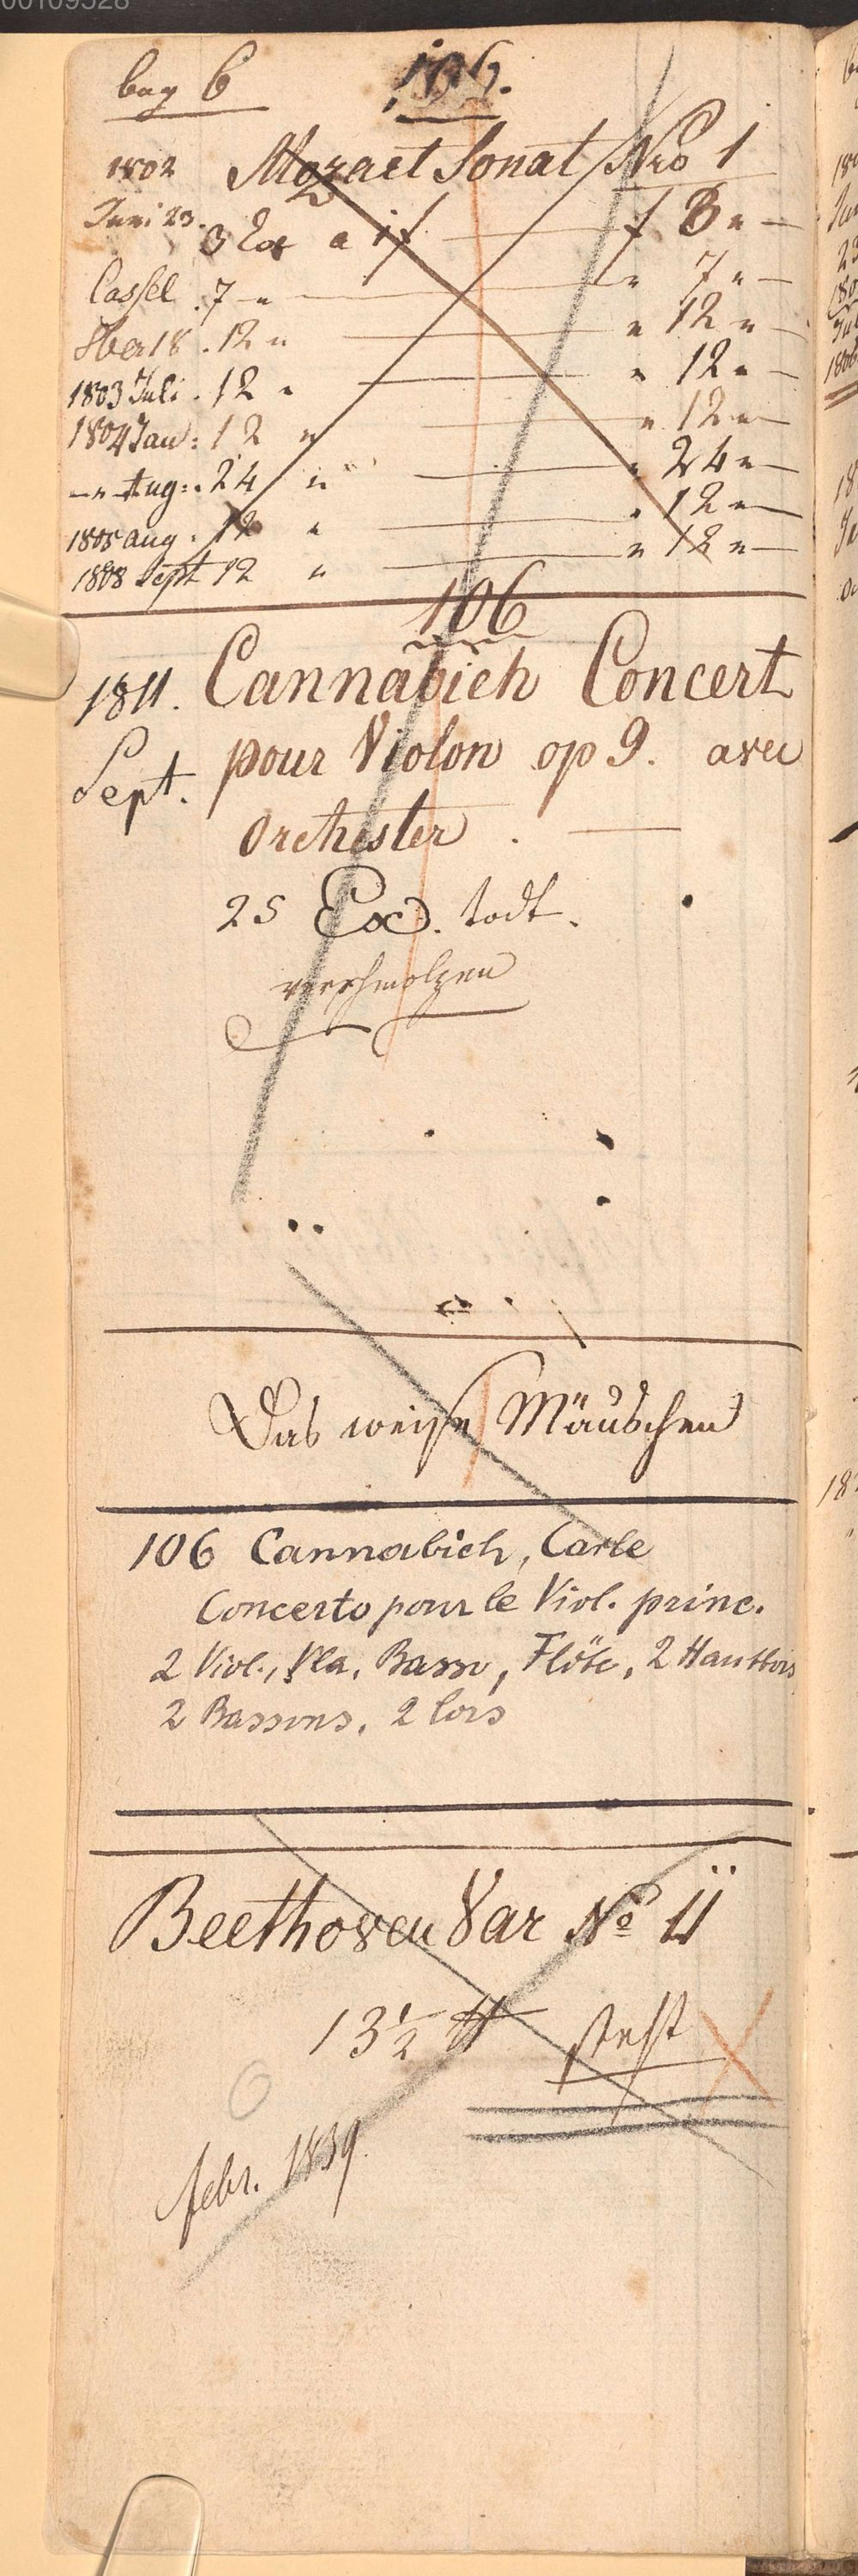 00109528
bog 6 106.
1802 Mozart Sonat Nro 1
Juni 23. 3 Ex a 1 f — f 3 „ —
Cassel . 7 „ — „ 7 „ —
8ber 18 . 12 „ — „ 12 „ —
1803 Juli . 12 „ — „ 12 „ —
1804 Jan: 12 „ — „ 12 „ —
— „ — Aug: . 24 „ — „ 24 „ —
1805 aug . 12 „ — „ 12 „ —
1808 Sept 12 „ — „ 12 „ —
106
1811. Cannabich Concert
Sept. pour Violon op 9. avec
Orchester . —
25 Ex. todt.
verschmolzen
Das weise Mäuschen
106 Cannabich, Carle
Concerto pour le Viol. princ.
2 Viol., Vla, Basso, Flöte, 2 Hautbois
2 Bassons, 2 Cors
Beethoven Var No 11
13½ ℔ steht
febr. 1839.